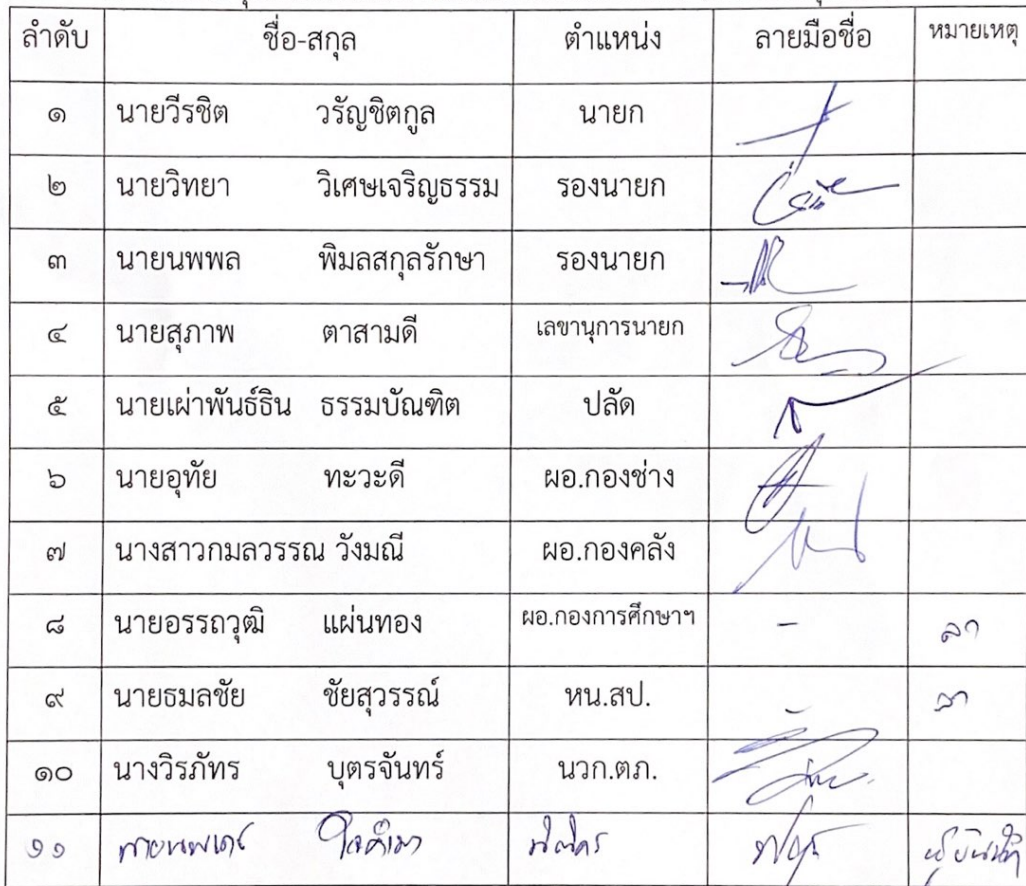 ลำดับ ชื่อ-สกุล ตำแหน่ง ลายมือชื่อ หมายเหตุ
๑ นายวีรชิต วรัญชิตกูล นายก
๒ นายวิทยา วิเศษเจริญธรรม รองนายก
๓ นายนพพล พิมลสกุลรักษา รองนายก
๔ นายสุภาพ ตาสามดี เลขานุการนายก
๕ นายเผ่าพันธ์ธิน ธรรมบัณฑิต ปลัด
๖ นายอุทัย ทะวะดี ผอ.กองช่าง
๗ นางสาวกมลวรรณ วังมณี ผอ.กองคลัง
๘ นายอรรถวุฒิ แผ่นทอง ผอ.กองการศึกษาฯ - ลา
๙ นายธมลชัย ชัยสุวรรณ์ หน.สป. ลา
๑๐ นางวิรภัทร บุตรจันทร์ นวก.ตภ.
๑๑ นิติกร